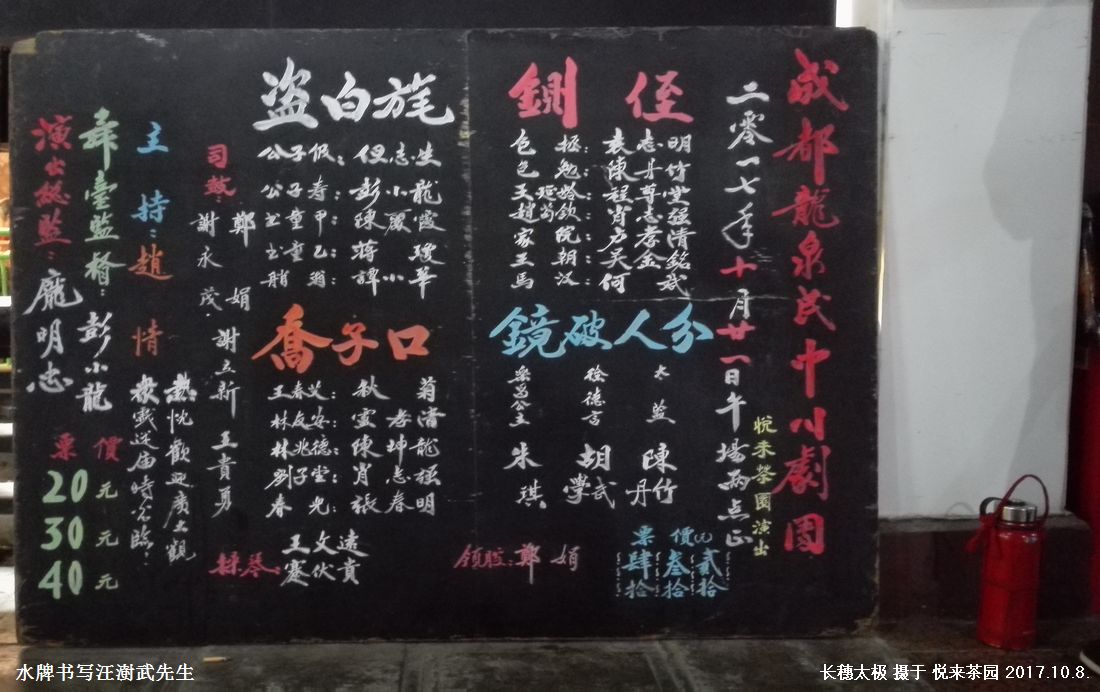 成都龍泉民中川劇團
二零一七年十月廿一日午場兩点正
悦来茶園演出
鍘侄
包拯：袁志明
包勉：陳丹竹
王延龄：程尊堂
趙炳：肖志强
王朝：
馬汉：何
分人破鏡
太监 陳丹竹
徐德言 胡學武
樂昌公主 朱琪
票價
贰拾
叁拾
肆拾
領腔：鄭娟
盗白旄
公子伋：但志生
公子寿：彭小龍
童甲：陳霞
童乙：蒋瓊
艄翁：譚小華
喬子口
王春艾：秋菊
林友安：雲孝清
林兆德：陳坤龍
劉子堂：肖志强
春光：張春明
操琴：王文遠
蹇伏貴
司鼓：鄭娟
謝永茂
謝立新
王貴勇
主持：趙情
舞臺監督：彭小龍
演出總監：龐明志
熱忱歡迎廣大觀
衆戲迷届時光臨：
票價
20元
30元
40元
水牌书写汪澍武先生
长穗太极 摄于 悦来茶园 2017.10.8.